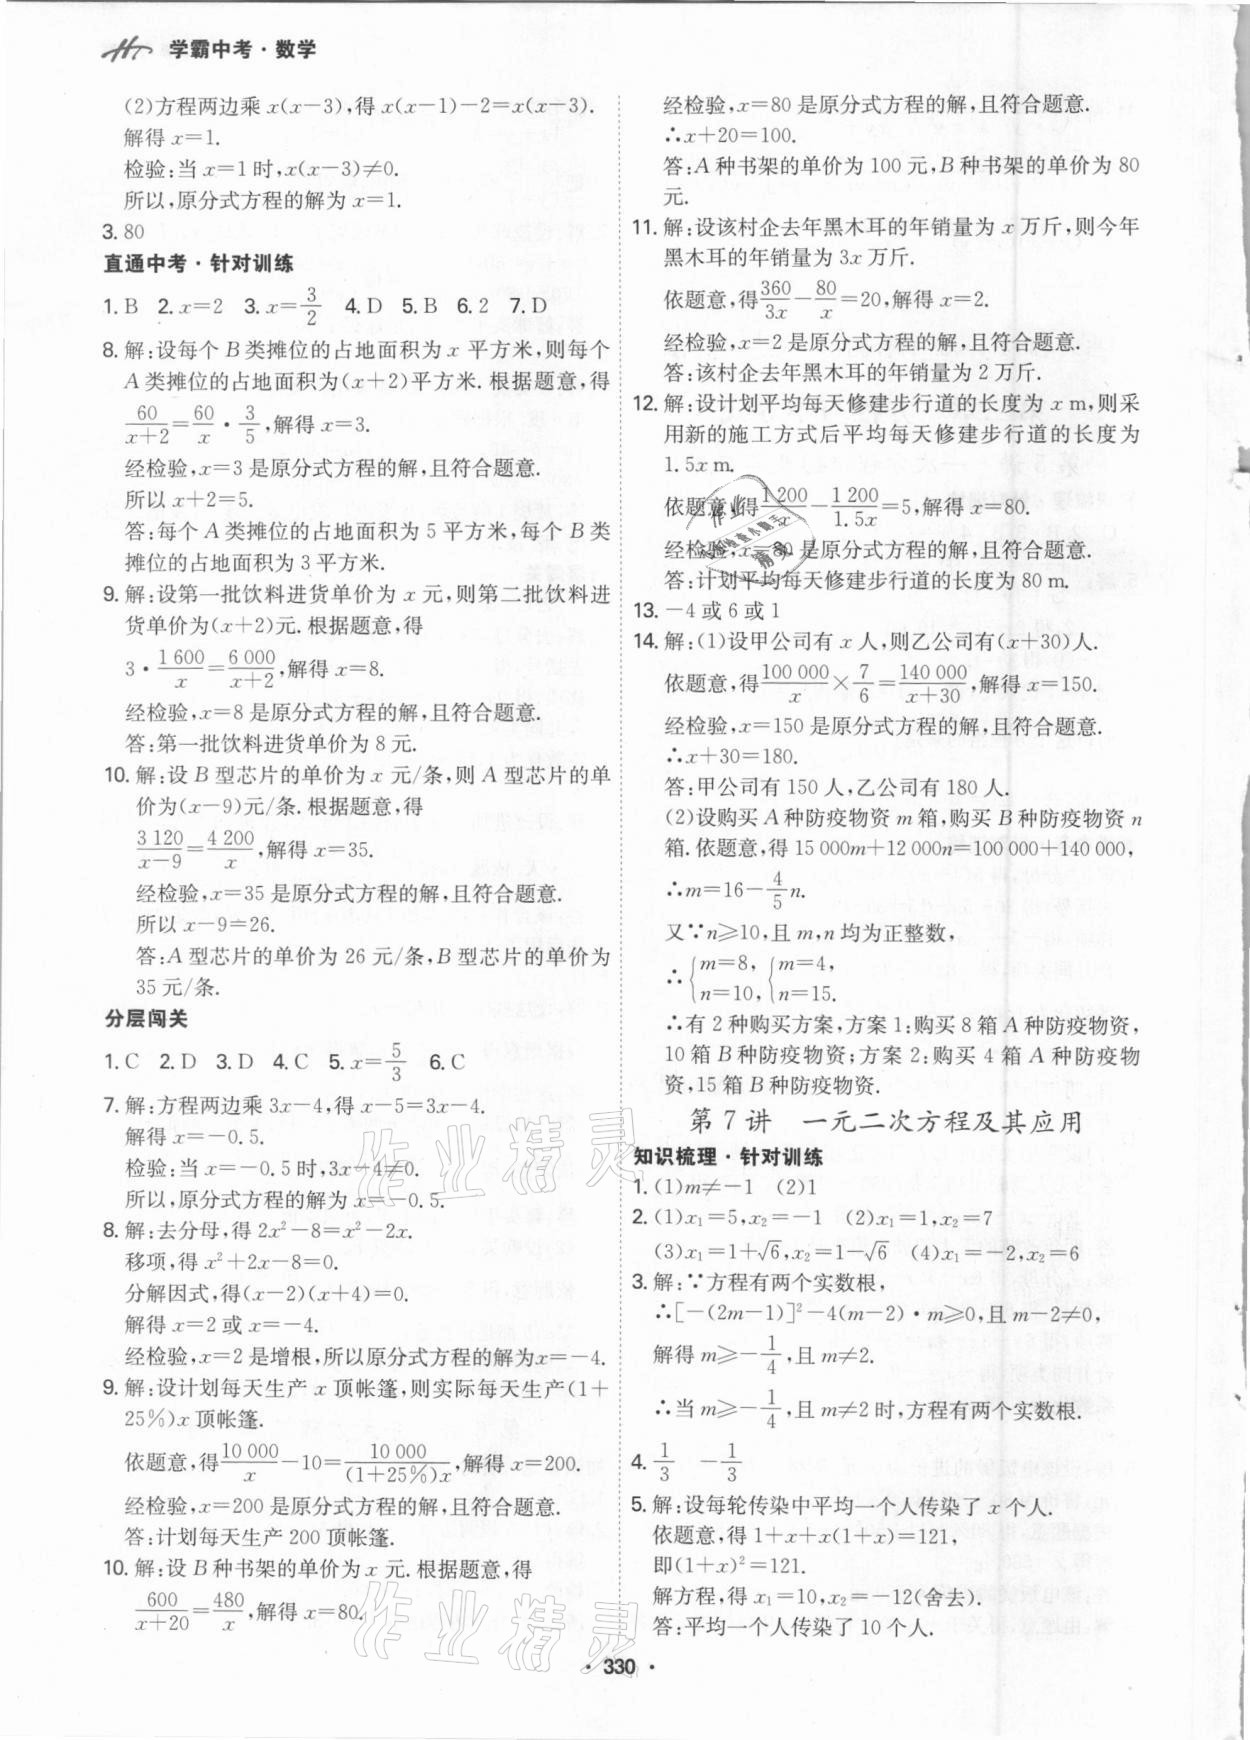 学霸中考·数学
(2)方程两边乘 x(x-3),得 x(x-1)-2=x(x-3).
解得 x=1.
检验:当 x=1 时,x(x-3)≠0.
所以,原分式方程的解为 x=1.
3. 80
直通中考·针对训练
1. B 2. x=2 3. x=3/2 4. D 5. B 6. 2 7. D
8. 解:设每个 B 类摊位的占地面积为 x 平方米,则每个
A 类摊位的占地面积为(x+2)平方米. 根据题意,得
60/(x+2)=60/x·3/5,解得 x=3.
经检验,x=3 是原分式方程的解,且符合题意.
所以 x+2=5.
答:每个 A 类摊位的占地面积为 5 平方米,每个 B 类
摊位的占地面积为 3 平方米.
9. 解:设第一批饮料进货单价为 x 元,则第二批饮料进
货单价为(x+2)元. 根据题意,得
3·1 600/x=6 000/(x+2),解得 x=8.
经检验,x=8 是原分式方程的解,且符合题意.
答:第一批饮料进货单价为 8 元.
10. 解:设 B 型芯片的单价为 x 元/条,则 A 型芯片的单
价为(x-9)元/条. 根据题意,得
3 120/(x-9)=4 200/x,解得 x=35.
经检验,x=35 是原分式方程的解,且符合题意.
所以 x-9=26.
答:A 型芯片的单价为 26 元/条,B 型芯片的单价为
35 元/条.
分层闯关
1. C 2. D 3. D 4. C 5. x=5/3 6. C
7. 解:方程两边乘 3x-4,得 x-5=3x-4.
解得 x=-0.5.
检验:当 x=-0.5 时,3x-4≠0.
所以,原分式方程的解为 x=-0.5.
8. 解:去分母,得 2x²-8=x²-2x.
移项,得 x²+2x-8=0.
分解因式,得(x-2)(x+4)=0.
解得 x=2 或 x=-4.
经检验,x=2 是增根,所以原分式方程的解为x=-4.
9. 解:设计划每天生产 x 顶帐篷,则实际每天生产(1+
25%)x 顶帐篷.
依题意,得10 000/x-10=10 000/((1+25%)x),解得 x=200.
经检验,x=200 是原分式方程的解,且符合题意.
答:计划每天生产 200 顶帐篷.
10. 解:设 B 种书架的单价为 x 元. 根据题意,得
600/(x+20)=480/x,解得 x=80.
经检验,x=80 是原分式方程的解,且符合题意.
∴x+20=100.
答:A 种书架的单价为 100 元,B 种书架的单价为 80
元.
11. 解:设该村企去年黑木耳的年销量为 x 万斤,则今年
黑木耳的年销量为 3x 万斤.
依题意,得360/3x-80/x=20,解得 x=2.
经检验,x=2 是原分式方程的解,且符合题意.
答:该村企去年黑木耳的年销量为 2 万斤.
12. 解:设计划平均每天修建步行道的长度为 x m,则采
用新的施工方式后平均每天修建步行道的长度为
1.5x m.
依题意,得1 200/x-1 200/1.5x=5,解得 x=80.
经检验,x=80 是原分式方程的解,且符合题意.
答:计划平均每天修建步行道的长度为 80 m.
13. -4 或 6 或 1
14. 解:(1)设甲公司有 x 人,则乙公司有(x+30)人.
依题意,得100 000/x×7/6=140 000/(x+30),解得 x=150.
经检验,x=150 是原分式方程的解,且符合题意.
∴x+30=180.
答:甲公司有 150 人,乙公司有 180 人.
(2)设购买 A 种防疫物资 m 箱,购买 B 种防疫物资 n
箱. 依题意,得 15 000m+12 000n=100 000+140 000,
∴m=16-4/5n.
又∵n≥10,且 m,n 均为正整数,
∴{m=8, n=10, {m=4, n=15.
∴有 2 种购买方案,方案 1:购买 8 箱 A 种防疫物资,
10 箱 B 种防疫物资;方案 2:购买 4 箱 A 种防疫物
资,15 箱 B 种防疫物资.
第 7 讲 一元二次方程及其应用
知识梳理·针对训练
1. (1)m≠-1 (2)1
2. (1)x₁=5,x₂=-1 (2)x₁=1,x₂=7
(3)x₁=1+√6,x₂=1-√6 (4)x₁=-2,x₂=6
3. 解:∵方程有两个实数根,
∴[-(2m-1)]²-4(m-2)·m≥0,且 m-2≠0,
解得 m≥-1/4,且 m≠2.
∴当 m≥-1/4,且 m≠2 时,方程有两个实数根.
4. 1/3 -1/3
5. 解:设每轮传染中平均一个人传染了 x 个人.
依题意,得 1+x+x(1+x)=121,
即(1+x)²=121.
解方程,得 x₁=10,x₂=-12(舍去).
答:平均一个人传染了 10 个人.
·330·
作业精灵
作业精灵